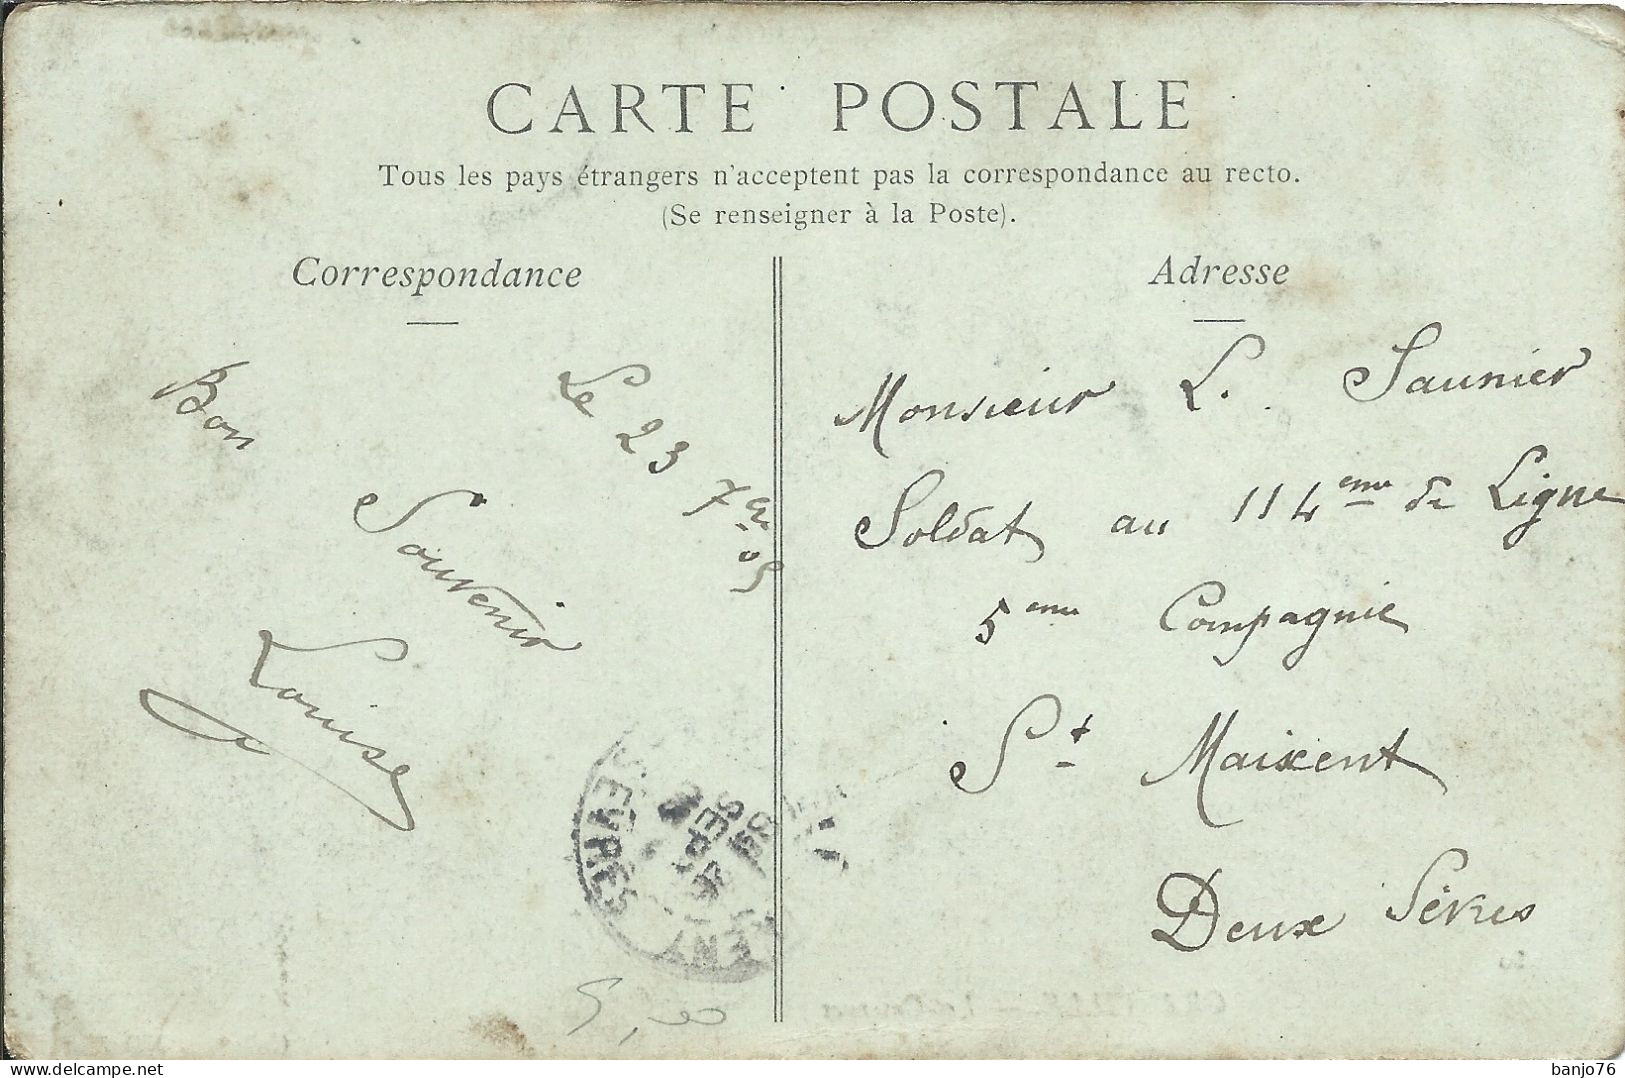 CARTE POSTALE
Tous les pays étrangers n'acceptent pas la correspondance au recto.
(Se renseigner à la Poste).
Correspondance
Le 23 7bre 05
Bon
Souvenir
Louise
SEVRES
5,00
Adresse
Monsieur L. Saunier
Soldat au 114eme de Ligne
5eme Compagnie
St Maixent
Deux Sèvres
banjo76